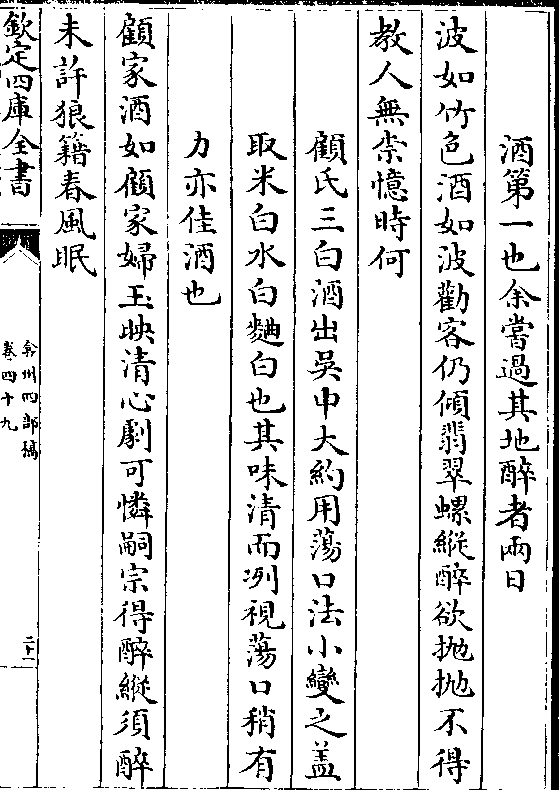 酒第一也余嘗過其地醉者兩日
波如竹色酒如波勸客仍傾翡翠螺縱醉欲拋拋不得
教人無柰憶時何
顧氏三白酒出吳中大約用蕩口法小變之盖
取米白水白麯白也其味清而冽視蕩口稍有
力亦佳酒也
顧家酒如顧家婦玉映清心劇可憐嗣宗得醉縱須醉
未許狼籍春風眠
欽定四庫全書
弇州四部稿
卷四十九
二十一